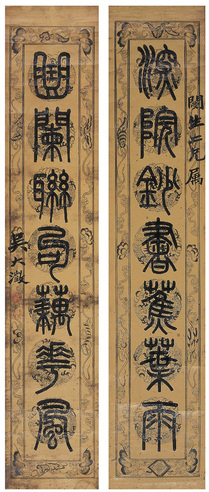 深院鈔書蕉葉雨
閣生仁兄属
回闌聯句藕花風
吳大澂